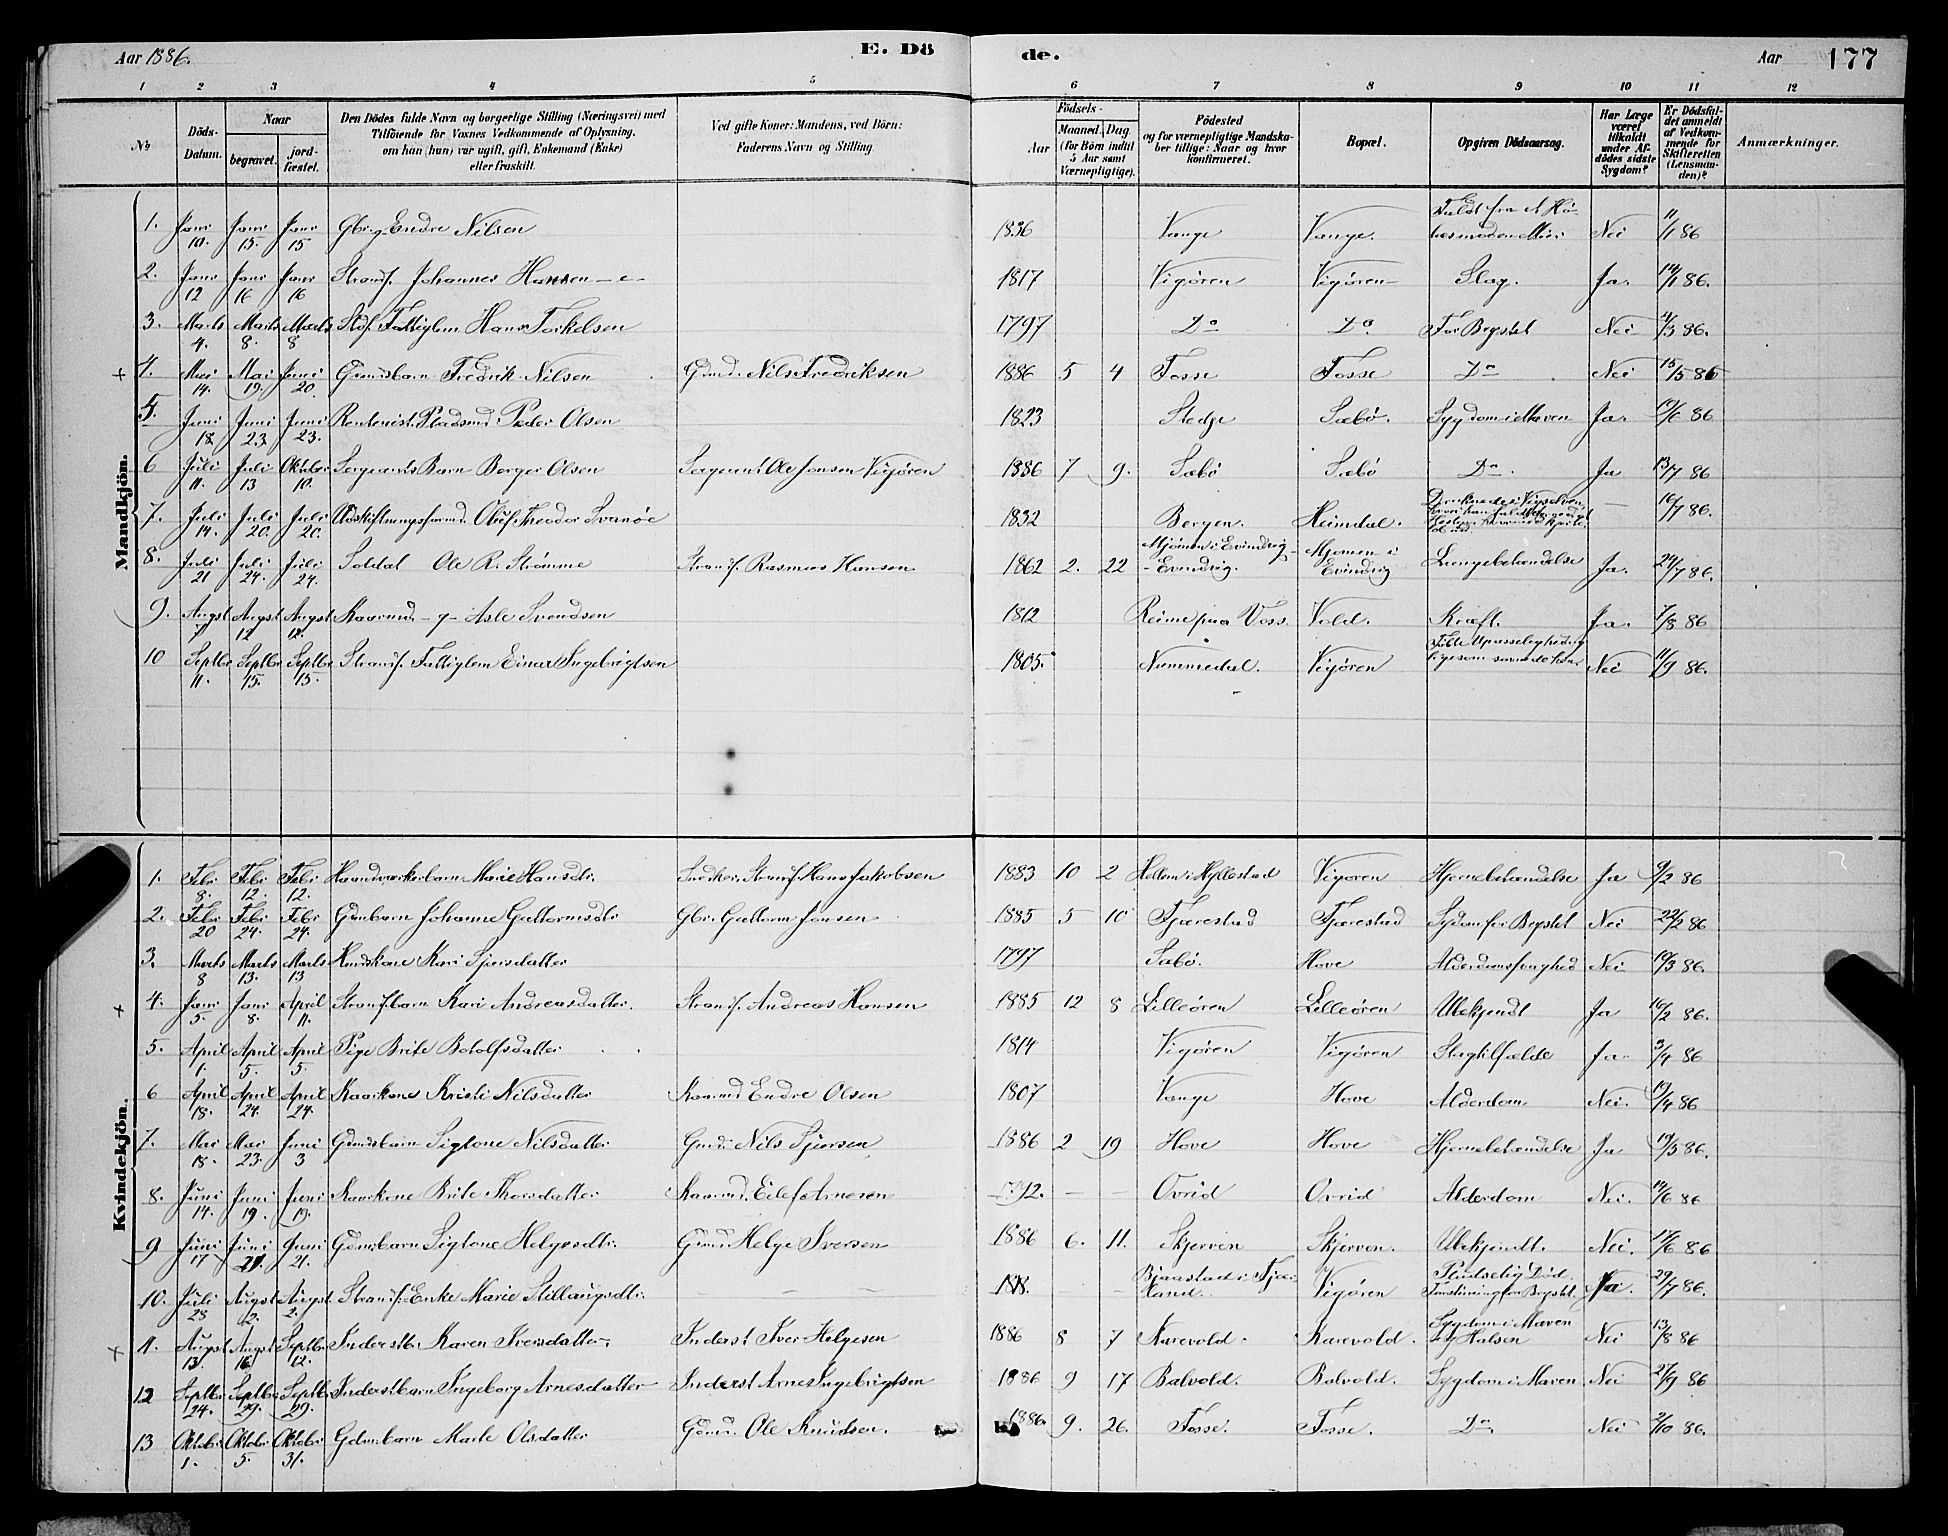 Aar 1886. E. Dö de. Aar 177
1 2 3 4 5 6 7 8 9 10 11 12
No Döds-Datum. Naar begravet. jordfæstet. Den Dödes fulde Navn og borgerlige Stilling (Næringsvei) med Tilföiende for Voxnes Vedkommende af Oplysning, om han (hun) var ugift, gift, Enkemand (Enke) eller fraskilt. Ved gifte Koner: Mandens, ved Börn: Faderens Navn og Stilling. Födsels- Aar Maaned. Dag. (for Börn indtil 5 Aar samt Værnepligtige). Födested og for værnepligtige Mandskaber tillige: Naar og hvor konfirmeret. Bopæl. Opgiven Dödsaarsag. Har Læge været tilkaldt under Afdödes sidste Sygdom? Er Dödsfaldet anmeldt af Vedkommende for Skifteretten (Lensmanden)? Anmærkninger.
Mandkjön.
1. Janr 10. Janr 15. Janr 15 Gbr. g. Endre Nilsen 1836 Vange Vange. Nei 11/1 86
2. Janr 12 Janr 16 Janr 16 Strands. Johannes Hansen - e - 1817 Vigøren Vigøren Slag. Ja. 14/1 86.
3. Marts 4. Marts 8. Marts 8 Fattiglem Hans Torkelsen 1797 Do Do For Brystet Nei 4/3 86.
+ 4. Mai 14. Mai 19. Juni 20. Gmdsbarn Fredrik Nilsen Gmd. Nils Fredriksen 1886 5 4 Fosse Fosse Do Nei 15/5 86
5. Juni 18 Juni 23 Juni 23. Pladsmd Peder Olsen 1823 Stedje Sæbø. Sygdom i Maven Ja. 19/6 86
6 Juli 11. Juli 13 Oktober 10. Sergeants Barn Berger Olsen Sergeant Ole Jonsen Vigøren 1886 7 9. Sæbø Sæbø Do. Ja 13/7 86
7. Juli 14. Juli 20. Juli 20. Udskiftningsformd. Oluf Theodor Svanøe 1832 Bergen. Heimdal. — 16/7 86.
8. Juli 21 Juli 24. Juli 24. Soldat Ole R. Strømme Strands. Rasmus Hansen 1862 2. 22 Mjømen i Evindvig - Evindvig. Mjømen i Evindvig Lungebetændelse Ja. 24/7 86.
9. Augst 7 Augst 12 Augst 12. Kaarmd - g - Asle Svendsen 1812 Reime fra Voss. Vold. Kræft. Ja. 7/8 86
10 Septbr 11. Septbr 15. Septbr 15. Strands. Fattiglem Einar Ingebrigtsen 1805. Nummedal. Vigøren Nei 11/9 86.
Kvindekjön.
1. Febr 8. Febr 12 Febr 12. Haandværkerbarn Marie Hansdtr. Snedker. Strands. Hans Jakobsen 1883 10 2 Hellem i Hyllestad Vigøren Hjernebetændelse Ja 9/2 86
2. Febr 20 Febr 24. Febr 24. Gdmbarn Johanne Guttormsdtr Gbr. Guttorm Jonsen 1885 5 10 Fjærestad Fjærestad Sygdom for Brystet Nei 22/2 86
3. Marts 8 Marts 13. Marts 13 Kari Sjursdatter 1797 Sæbø. Hove Alderdomssvaghed Nei 10/3 86.
+ 4. Janr 5. Janr 8. April 11. Strandsbarn Kari Andreasdatter. Strands. Andreas Hansen 1885 12 8 Lilleøren Lilleøren Ubekjendt Ja 16/2 86.
5. April 1. April 5. April 5. Pige Brite Botolfsdatter 1814 Vigøren Vigøren Slagtilfælde Ja 3/4 86
6 April 18. April 24. April 24. Kaarkone Kristi Nilsdatter Kaarmd Endre Olsen 1807 Vange Hove Alderdom Nei. 19/4 86
7. Mai 18. Mai 23. Juni 3 Gdmdsbarn Sigtone Nilsdatter Gmd: Nils Sjursen 1886 2 19 Hove Hove Hjernebetændelse Ja 19/5 86.
8. Juni 14. Juni 19. Juni 19. Kaarkone Brite Thorsdatter Kaarmd. Eilef Arnesen 1792. — — Ovrid Ovrid Alderdom Nei. 14/6 86
9 Juni 17 Juni 21. Juni 21. Gdmbarn Sigtone Helgesdtr. Gmd. Helge Iversen 1886 6. 11. Skjerven Skjerven. Ubekjendt. Nei. 17/6 86
10. Juli 28 Augst 2. Augst 2. Strands. Enke Marie Stillaugsdtr. — — Bjaastad i Fjærland. Vigøren Pludselig Død. Nei. 29/7 86.
+ 11. Augst 13. Augst 16 Septbr 12. Inderstb. Karen Iversdatter. Inderst Iver Helgesen 1886 8 7 Karevold. Karevold. Sygdom i Maven og Halsen Nei 13/8 86
12 Septbr 24. Septbr 29. Septbr 29. Inderstbarn Ingeborg Arnesdatter Inderst Arne Ingebrigtsen 1886 9 17 Balvold. Balvold. Sygdom i Maven Nei 27/9 86
13 Oktobr 1. Oktobr 5 Oktobr 31. Gdmbarn Marte Olsdatter Gdmd. Ole Knudsen. 1886. 9. 26. Fosse. Fosse. Do. Nei 2/10 86.